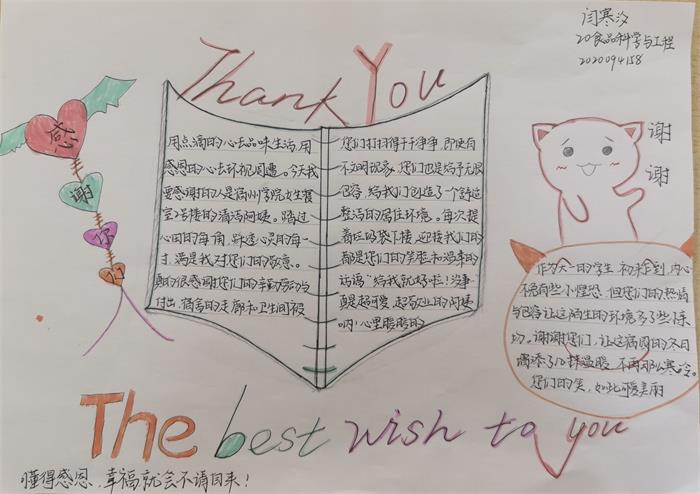 闫寒汐
20食品科学与工程
2020094158
Thank You
感
谢
你
们
谢
谢
用点滴的心去品味生活,用
感恩的心去环视周遭。今天我
要感谢的人是宿州学院女生寝
室2号楼的清洁阿姨。踏过
心田的每一角,踩透心灵的每一
寸,满是我对您们的敬意。
真的很感谢您们的辛勤劳动与
付出,宿舍的走廊和卫生间被
您们打扫得干干净净,即使有
不文明玩家,您们也是给予无限
包容,给我们创造了一个舒适
整洁的居住环境。每次提
着垃圾袋下楼,迎接我们的
都是您们的笑脸和温柔的
话语“给我就好啦!没事
真是超可爱,超敬业的阿姨
呐!心里暖暖的
作为大一的学生,初来乍到,内心
不免有些小惶恐,但您们的热情
与包容让这陌生的环境多了些亲
切。谢谢您们,让这校园的冬日
偶添了几抹温暖,不再那么寒冷。
您们的笑,如此可爱美丽
The best wish to you
懂得感恩,幸福就会不请自来!